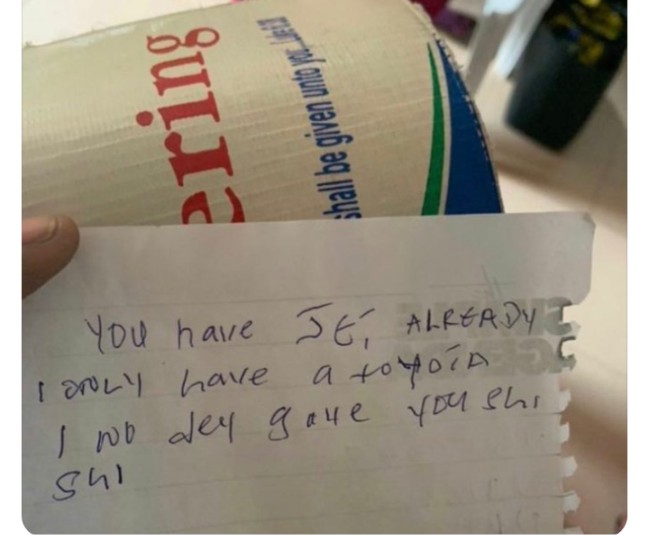 ering
shall be given unto you. Luke 6:38
YOU have JET ALREADY
I ONLY have a toYOTA
I NO dey gave YOU shi
Shi